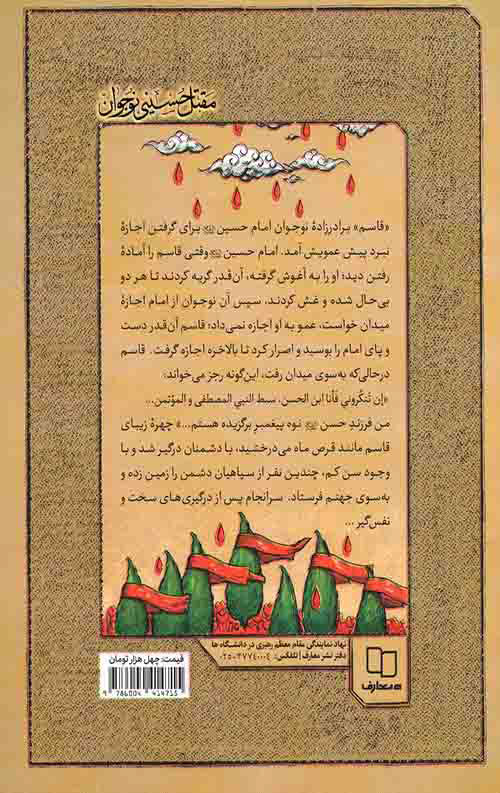 مقتل حسینی نوجوان
«قاسم» برادرزادهٔ نوجوان امام حسین برای گرفتن اجازهٔ
نبرد پیش عمویش آمد. امام حسین وقتی قاسم را آمادهٔ
رفتن دید؛ او را به آغوش گرفته، آن‌قدر گریه کردند تا هر دو
بی‌حال شده و غش کردند، سپس آن نوجوان از امام اجازهٔ
میدان خواست، عمو به او اجازه نمی‌داد؛ قاسم آن‌قدر دست
و پای امام را بوسید و اصرار کرد تا بالاخره اجازه گرفت. قاسم
درحالی‌که به‌سوی میدان رفت، این‌گونه رجز می‌خواند:
«إن تنکُروني فأنا ابن الحسن، سبط النبي المصطفی و المؤتمن...
من فرزندِ حسن نوه پیغمبرِ برگزیده هستم...» چهرهٔ زیبای
قاسم مانند قرص ماه می‌درخشید، با دشمنان درگیر شد و با
وجود سن کم، چندین نفر از سپاهیان دشمن را زمین زده و
به‌سوی جهنم فرستاد. سرانجام پس از درگیری‌های سخت و
نفس‌گیر ...
نهاد نمایندگی مقام معظم رهبری در دانشگاه ها
دفتر نشر معارف | تلفکس: ۰۲۵-۳۷۷۴۰۰۰۴
معارف
قیمت: چهل هزار تومان
9 786004 414715